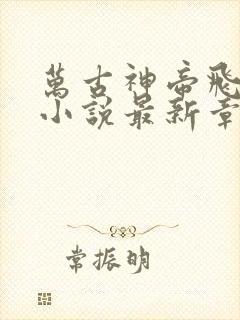 萬古神帝飛
小說最新章
常振明